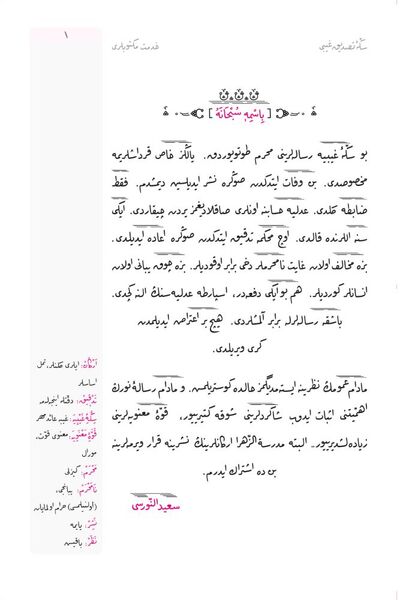 سكۀ تصديق غيبى
خدمت مكتوبلرى
١
[ بِاسْمِهِ سُبْحَانَهُ ]
بو سكۀ غيبيه رساله‌لرينى محرم طوتويوردق. يالڭز خاص قرداشلريمه
مخصوصدى. بن وفات ايتدكدن صوڭره نشر ايديلسين ديمشدم. فقط
ضابطه كلدى. عدليه حسابنه اونلرى صاقلاديغمز يردن چيقاردى. ايكى
سنه اللرنده قالدى. اوچ محكمه تدقيق ايتدكدن صوڭره اعاده ايديلدى.
بزه مخالف اولان غايت نامحرملر دخى برابر اوقوديلر. بزه چوق يبانى اولان
انسانلر كورديلر. هم بو ايكى دفعه‌در، اسپارطه عدليه‌سنك النه كچدى.
باشقه رساله‌لرله برابر آلمشلردى. هيچ بر اعتراض ايديلمدن
كرى ويريلدى.
مادام عمومك نظرينه ايسته‌مديگمز حالده كوستريلمش. و مادام رسالۀ نورك
اهميتنى اثبات ايدوب شاكردلرينى شوقه كتيرييور. قوۀ معنويه‌لرينى
زياده‌لشديرييور. البته مدرسة الزهرا اركانلرينك نشرينه قرار ويرملرينه
بن ده اشتراك ايدرم.
سعيد النورسى
اَرْكَانْ: ايلرى كلنلر، تمل
اساسلر
تَدْقِيقْ: دقتله اينجلمه
سِكَّۀِ غَيْبِيَه: غيبه عائد مهر
قُوَّۀِ مَعْنَوِيَه: معنوى قوت،
مورال
مَحْرَمْ: كيزلى
نَامَحْرَمْ: يبانجى،
نَشِرْ: يايمه
نَظَرْ: باقيش